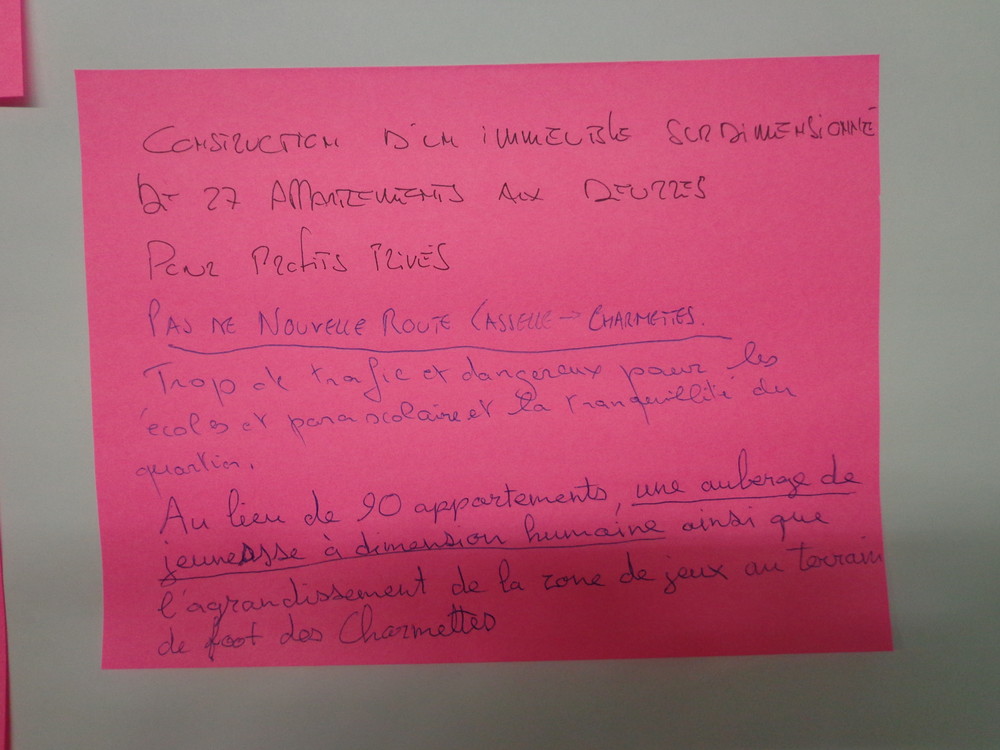 CONSTRUCTION D'UN IMMEUBLE SURDIMENSIONNÉ
DE 27 APPARTEMENTS AUX DEURRES
POUR PROFITS PRIVÉS
PAS DE NOUVELLE ROUTE CASSELLE → CHARMETTES.
Trop de trafic et dangereux pour les
écoles et parascolaire et la tranquillité du
quartier.
Au lieu de 90 appartements, une auberge de
jeunesse à dimension humaine ainsi que
l'agrandissement de la zone de jeux au terrain
de foot des Charmettes